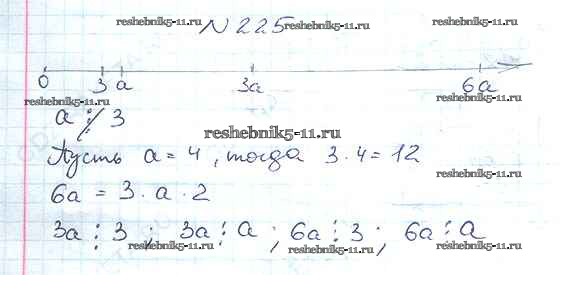 №225 reshebnik5-11.ru
0 3 a 3a 6a
reshebnik5-11.ru reshebnik5-11.ru
a ⋮̸ 3
reshebnik5-11.ru
Пусть a = 4, тогда 3 · 4 = 12
reshebnik5-11.ru
6a = 3 · a · 2
3a ⋮ 3 ; 3a ⋮ a ; 6a ⋮ 3 ; 6a ⋮ a
reshebnik5-11.ru reshebnik5-11.ru reshebnik5-11.ru